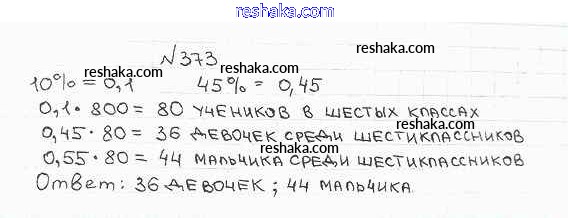 reshaka.ru
№373 reshaka.ru
reshaka.ru
10% = 0,1 45% = 0,45
reshaka.ru
0,1 · 800 = 80 учеников в шестых классах
0,45 · 80 = 36 девочек среди шестиклассников
reshaka.ru
0,55 · 80 = 44 мальчика среди шестиклассников
reshaka.ru
Ответ: 36 девочек; 44 мальчика.
reshaka.ru